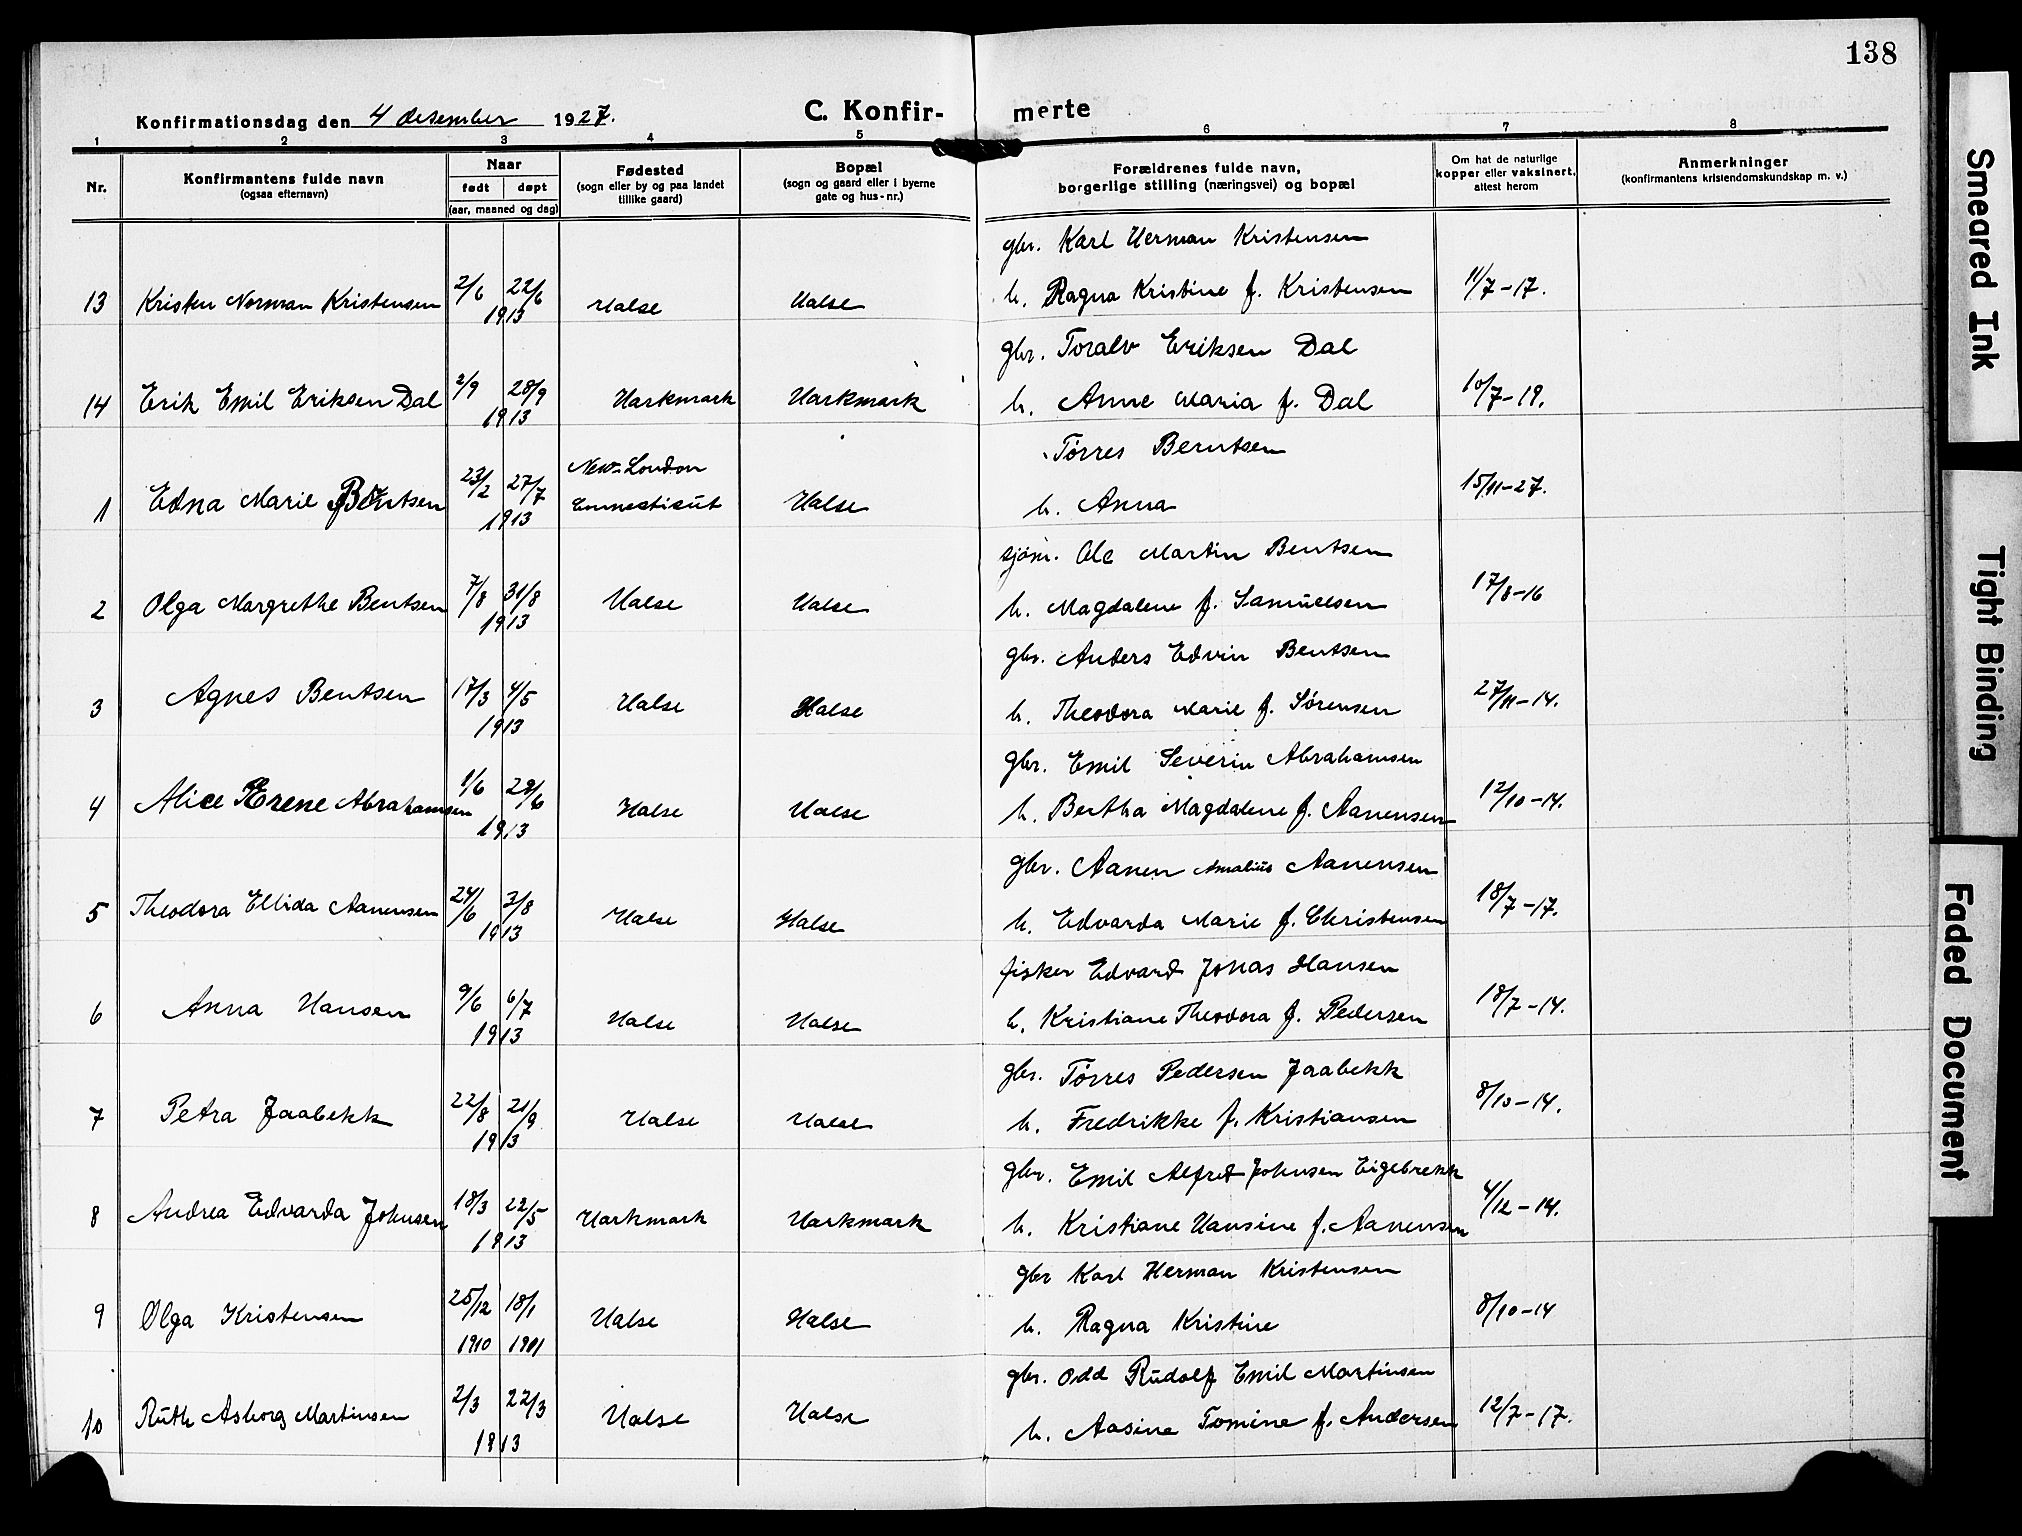 138
Konfirmationsdag den 4 desember 1927.
C. Konfir- merte
1 2 3 4 5 6 7 8
Nr.
Konfirmantens fulde navn
(ogsaa efternavn)
Naar
født døpt
(aar, maaned og dag)
Fødested
(sogn eller by og paa landet
tillike gaard)
Bopæl
(sogn og gaard eller i byerne
gate og hus-nr.)
Forældrenes fulde navn,
borgerlige stilling (næringsvei) og bopæl
Om hat de naturlige
kopper eller vaksinert,
attest herom
Anmerkninger
(konfirmantens kristendomskundskap m. v.)
gbr. Karl Herman Kristensen
13 Kristen Norman Kristensen 2/6 22/6 Halse Halse h. Ragna Kristine f. Kristensen 11/7-17.
1913
gbr. Toralv Eriksen Dal
14 Erik Emil Eriksen Dal 2/9 28/9 Harkmark Harkmark h. Anne Maria f. Dal 10/7-19.
1913
New-London Tørres Berntsen
1 Edna Marie Berntsen 23/2 27/7 Connecticut Halse h. Anna 15/11-27.
1913
sjøm. Ole Martin Bentsen
2 Olga Margrethe Bentsen 7/8 31/8 Halse Halse h. Magdalene f. Samuelsen 17/8-16
1913
gbr. Anders Edvin Bentsen
3 Agnes Bentsen 17/3 4/5 Halse Halse h. Theodora Marie f. Sørensen 27/11-14.
1913
gbr. Emil Severin Abrahamsen
4 Alice Erene Abrahamsen 1/6 29/6 Halse Halse h. Bertha Magdalene f. Aanensen 12/10-14.
1913
gbr. Aanen Amalius Aanensen
5 Theodora Ellida Aanensen 24/6 3/8 Halse Halse h. Edvarda Marie f. Christensen 18/7-17.
1913
fisker Edvard Jonas Hansen
6 Anna Hansen 9/6 6/7 Halse Halse h. Kristiane Theodora f. Pedersen 18/7-14.
1913
gbr. Tørres Pedersen Jaabekk
7 Petra Jaabekk 22/8 21/9 Halse Halse h. Fredrikke f. Kristiansen 8/10-14.
1913
gbr. Emil Alfred Johnsen Eigebrekk
8 Andrea Edvarda Johnsen 18/3 22/5 Harkmark Harkmark h. Kristiane Hansine f. Aanensen 4/12-14.
1913
gbr Karl Herman Kristensen
9 Olga Kristensen 25/12 18/1 Halse Halse h. Ragna Kristine 8/10-14
1910 1911
gbr. Odd Rudolf Emil Martinsen
10 Ruth Asborg Martinsen 2/3 22/3 Halse Halse h. Aasine Tomine f. Andersen 12/7-17.
1913
Smeared Ink
Tight Binding
Faded Document